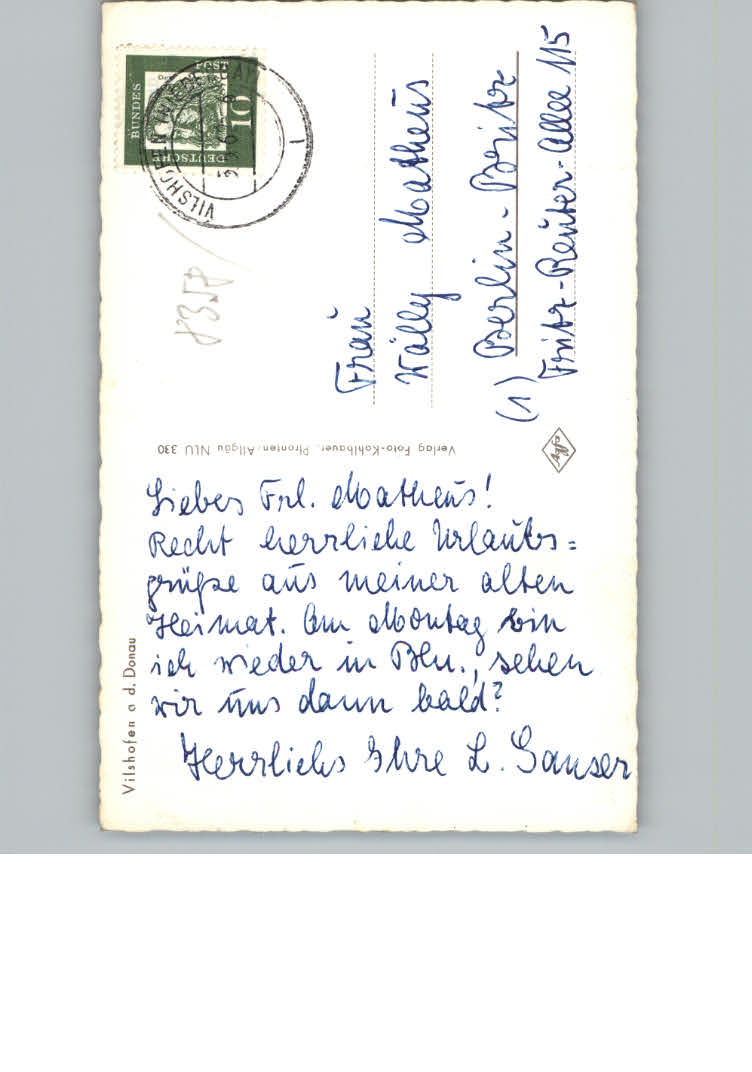 Vilshofen a d. Donau
Liebes Frl. Matheus!
Recht herzliche Urlaubs=
grüße aus meiner alten
Heimat. Am Montag bin
ich wieder in Bln., sehen
wir uns dann bald?
Herzlichs Ihre L. Gauser
Verlag Foto-Kohlbauer, Pfronten/Allgäu NLU 330
DEUTSCHE
BUNDES
POST
10
VILSHOFEN
1
8358
Frau
Wally Matheus
(1) Berlin-Britz
Fritz-Reuter-Allee 115